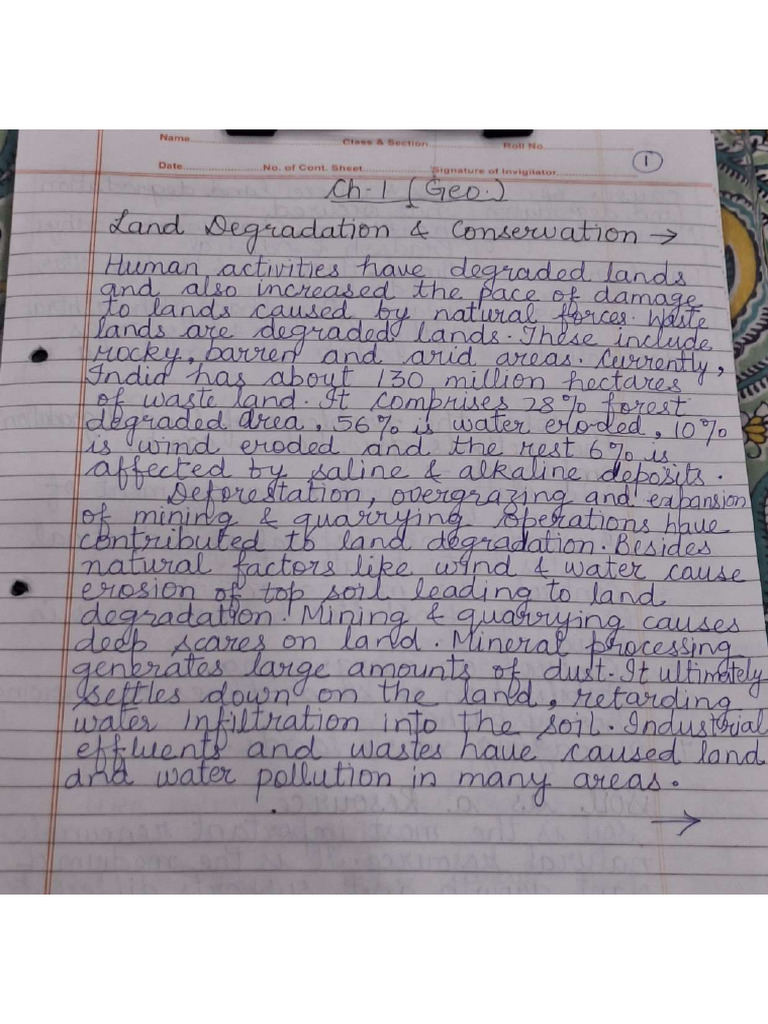 Name.................... Class & Section.................... Roll No....................
Date.................... No. of Cont. Sheet.................... Signature of Invigilator.................... 1
Ch-1 (Geo.)
Land Degradation & Conservation →
Human activities have degraded lands
and also increased the pace of damage
to lands caused by natural forces. Waste
lands are degraded lands. These include
rocky, barren and arid areas. Currently,
India has about 130 million hectares
of waste land. It comprises 28% forest
degraded area, 56% is water eroded, 10%
is wind eroded and the rest 6% is
affected by saline & alkaline deposits.
Deforestation, overgrazing and expansion
of mining & quarrying operations have
contributed to land degradation. Besides
natural factors like wind & water cause
erosion of top soil leading to land
degradation. Mining & quarrying causes
deep scares on land. Mineral processing
generates large amounts of dust. It ultimately
settles down on the land, retarding
water infiltration into the soil. Industrial
effluents and wastes have caused land
and water pollution in many areas.
→